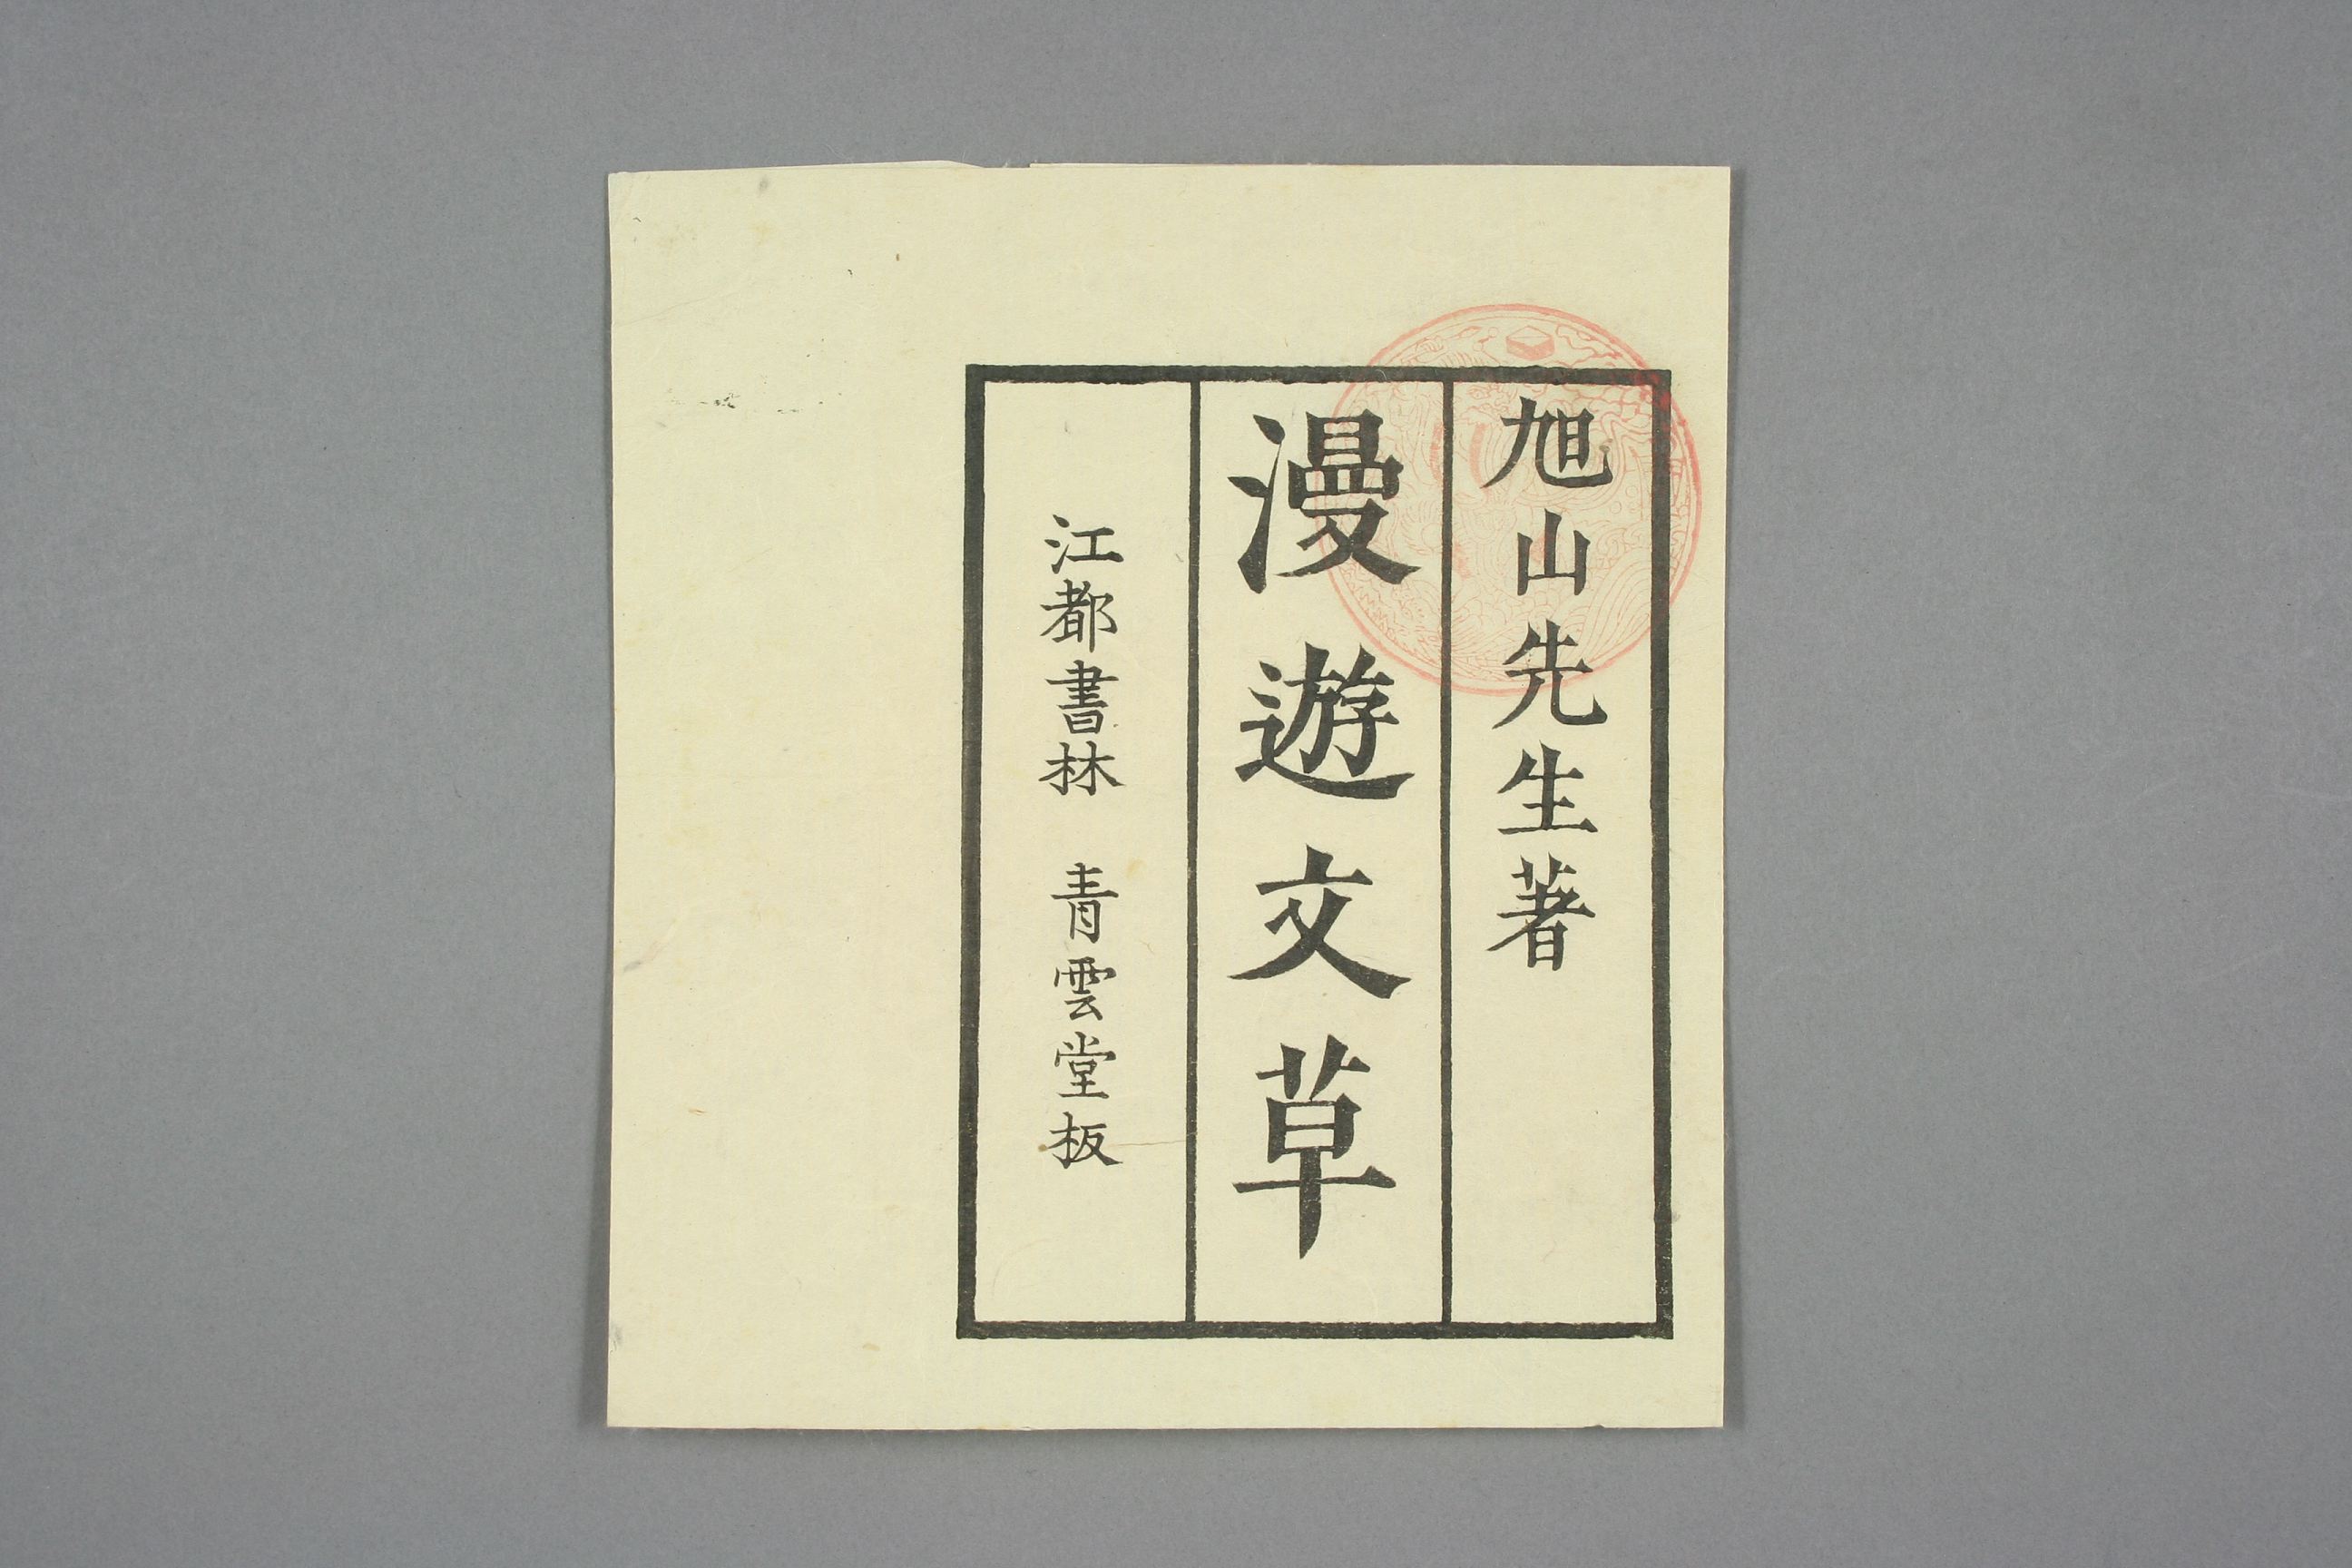 旭山先生著
漫遊文草
江都書林 青雲堂板